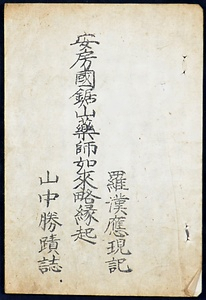 羅漢應現記
安房國鋸山藥師如來略緣起
山中勝蹟誌